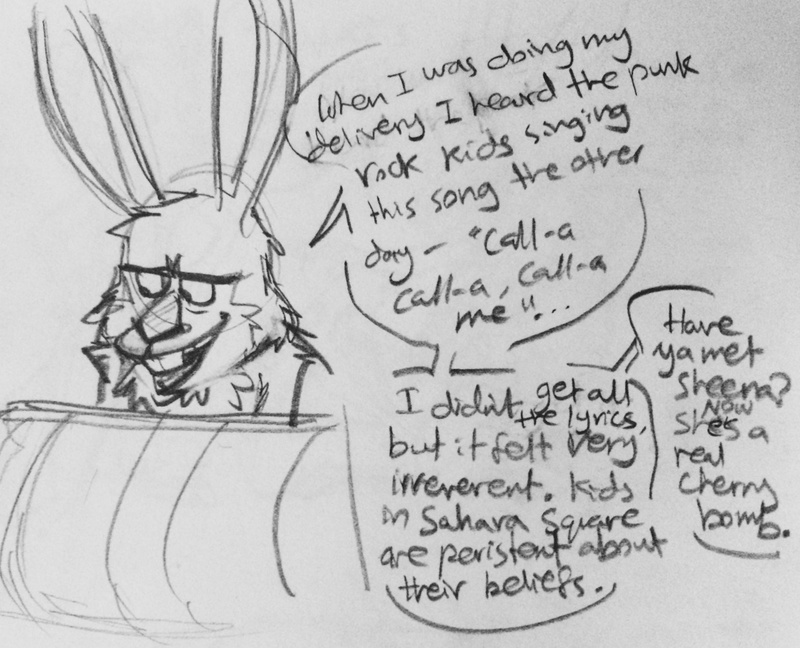 When I was doing my
delivery I heard the punk
rock kids singing
this song the other
day – "Call-a
Call-a, Call-a
me"...
I didn't get all
the lyrics,
but it felt very
irreverent. Kids
in Sahara Square
are peristent about
their beliefs.
Have
ya met
Sheena?
Now
She's a
real
Cherry
bomb.